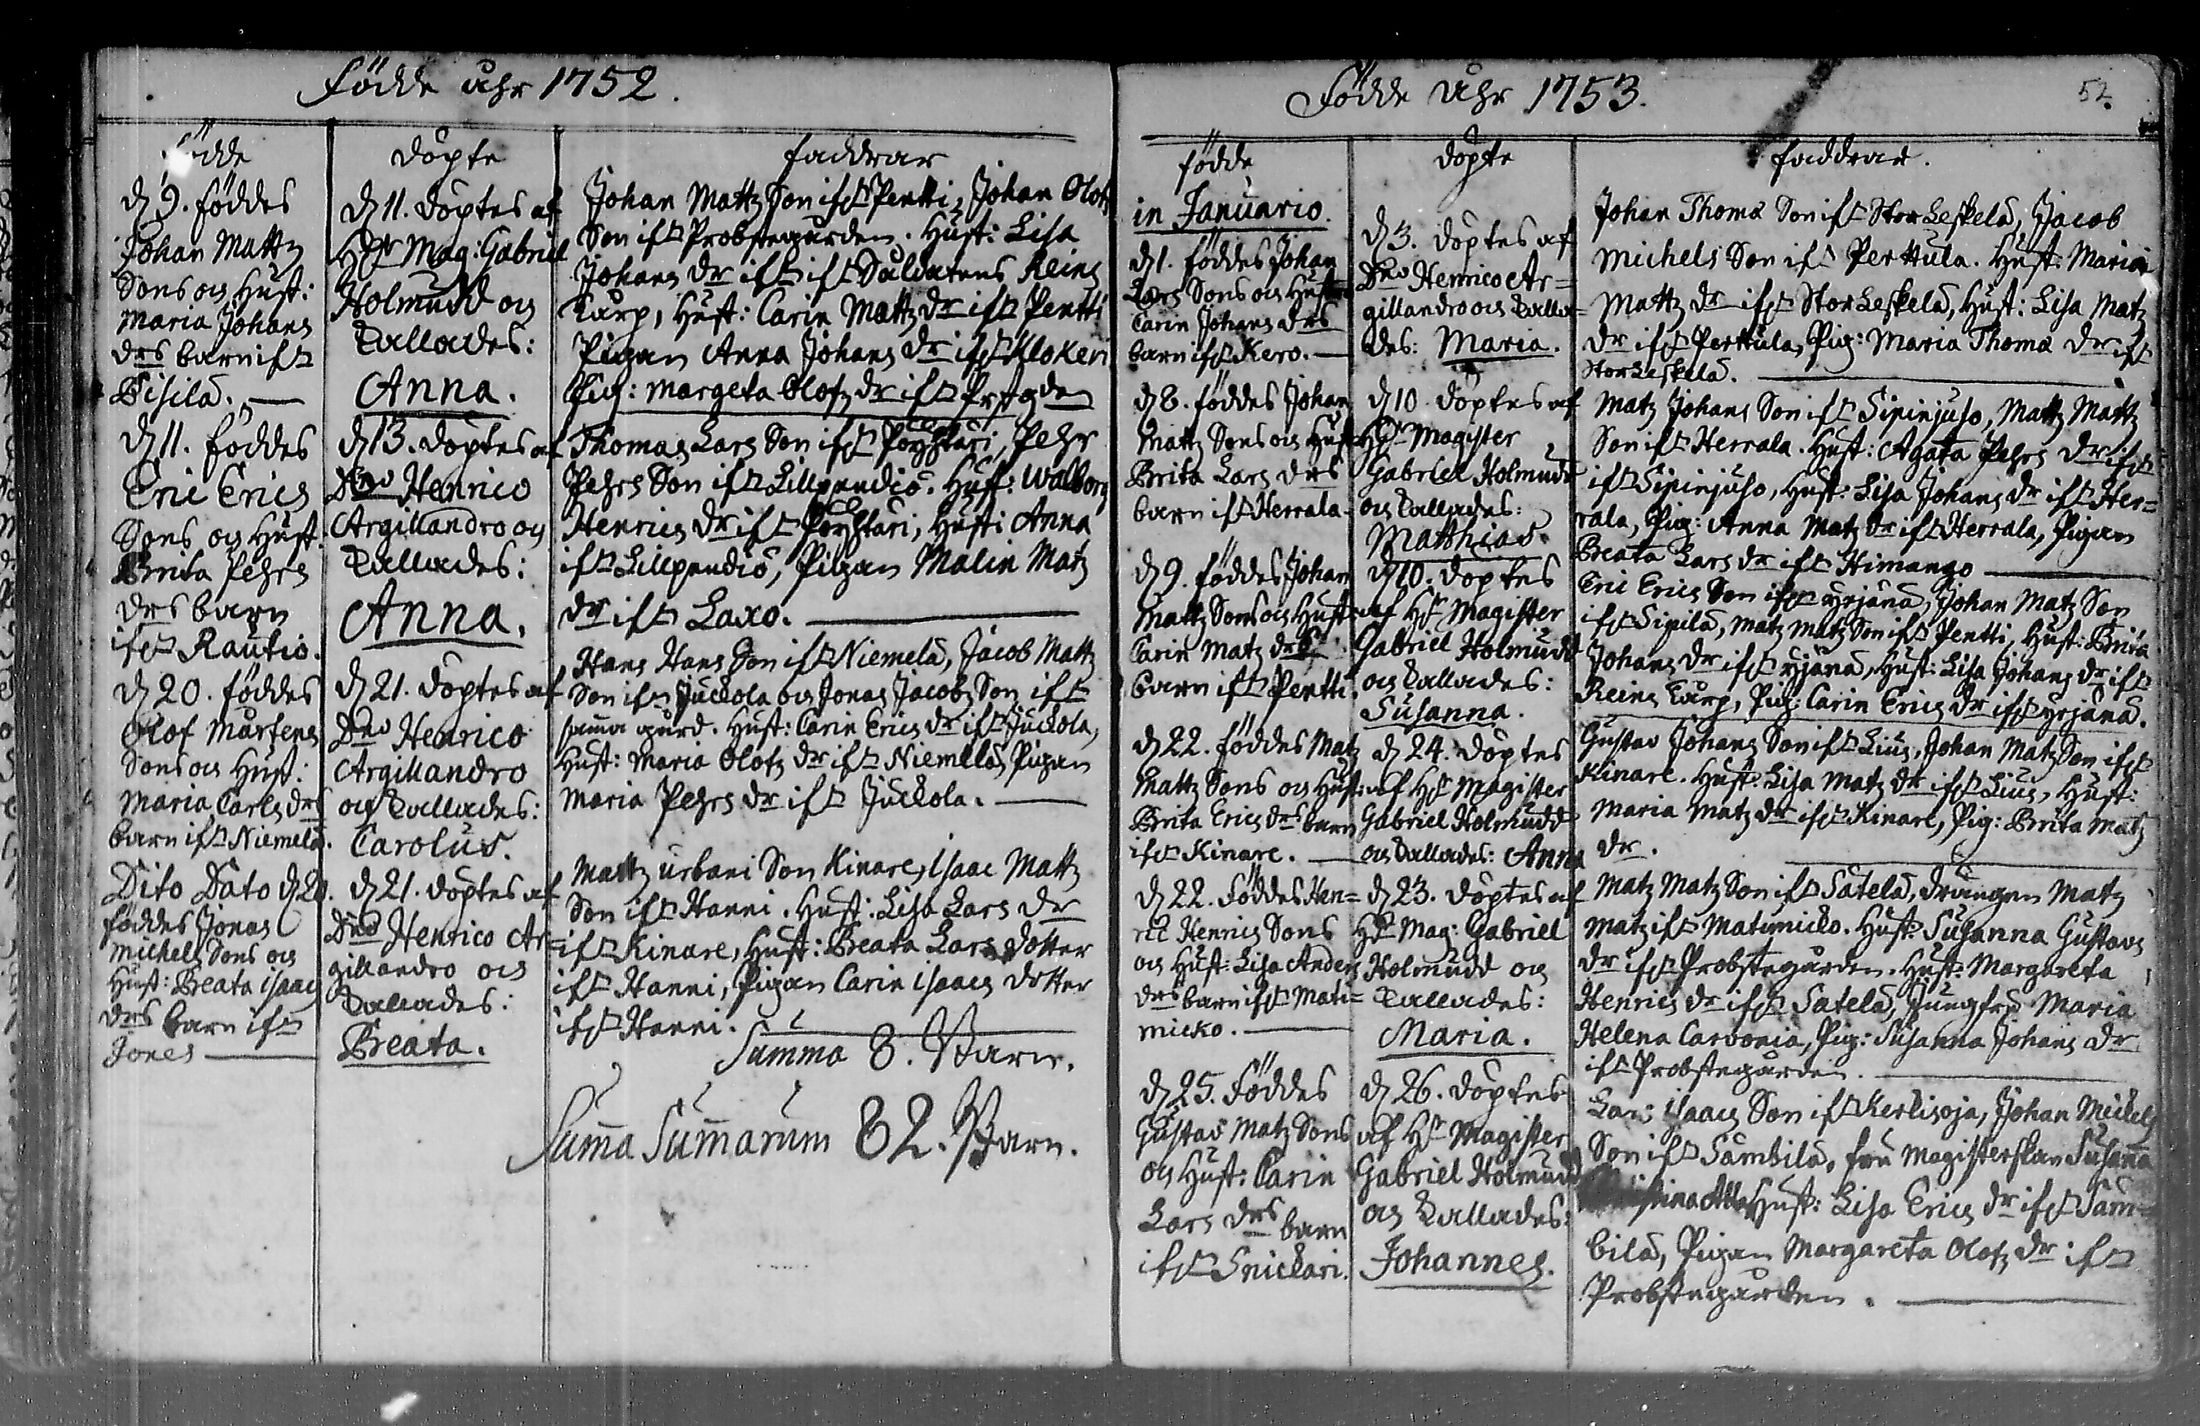 Födde åhr 1752.
födde
d. 9. föddes
Johan Mattz
Sons och Hust:
Maria Johans
drs barn ifr
Sisilä.
d. 11. föddes
Eric Erics
Sons och Hust.
Brita Pehrs
drs barn
ifr Rautio.
d. 20. föddes
Olof Mårtens
Sons och Hust:
Maria Carls drs
barn ifr Niemelä.
Dito Dato d. 20.
föddes Jonas
Michels Sons och
Hust: Beata Isaacs
drs barn ifr
Jones
döpte
d. 11. döptes af
Hr Mag: Gabriel
Holmudd och
kallades:
Anna.
d. 13. döptes af
Dno Henrico
Argillandro och
kallades:
Anna.
d. 21. döptes af
Dno Henrico
Argillandro
och kallades:
Carolus.
d. 21. döptes af
Dno Henrico Ar=
gillandro och
kallades:
Beata.
faddrar
Johan Mattz Son ifr Pentti, Johan Olofs
Son ifr Probstegården. Hust: Lisa
Johans dr ifr ifr Soldatens Reins
torp, Hust: Carin Mattz dr ifr Pentti
Pigan Anna Johans dr ifr Klokeri
Pig: Margeta Olofz dr ifr Prgden
Thomas Lars Son ifr Pöyhtäri, Pehr
Pehrs Son ifr Lillpundio. Hust: Walborg
Henrics dr ifr Pöyhtäri, Hust: Anna
ifr Lillpundio, Pigan Malin Matz
dr ifr Laxo.
Hans Hans Son ifr Niemelä, Jacob Mattz
Son ifr Juckola och Jonas Jacobs Son ifr
samma gård. Hust: Carin Erics dr ifr Juckola,
Hust: Maria Olofz dr ifr Niemelä, Pigan
Maria Pehrs dr ifr Juckola.
Mattz Urbani Son Kinare, Isaac Mattz
Son ifr Hanni. Hust: Lisa Lars dr
ifr Kinare, Hust: Beata Lars dotter
ifr Hanni, Pigan Carin Isaacs dotter
ifr Hanni.
Summa 8. Barn.
Summa Summarum 82. Barn.
Födde åhr 1753.
52.
födde
in Januario.
d. 1. föddes Johan
Lars Sons och Hust
Carin Johans drs
barn ifr Kero.
d. 8. föddes Johan
Mattz Sons och Hust
Brita Lars drs
barn ifr Herrala.
d. 9. föddes Johan
Mattz Sons och Hust
Carin Matz drs
barn ifr Pentti
d. 22. föddes Matz
Mattz Sons och Hust:
Brita Erics drs barn
ifr Kinare.
d. 22. föddes Hen=
ric Henrics Sons
och Hust: Lisa Anders
drs barn ifr Mati=
micko.
d. 25. föddes
Gustav Matz Sons
och Hust: Carin
Lars drs barn
ifr Snickari.
döpte
d. 3. döptes af
Dno Henrico Ar=
gillandro och kalla=
des: Maria.
d. 10. döptes af
Hr Magister
Gabriel Holmudd
och kallades:
Matthias.
d. 10. döptes
af Hr Magister
Gabriel Holmudd
och kallades:
Susanna.
d. 24. döptes
af Hr Magister
Gabriel Holmudd
och kallades: Anna
d. 23. döptes af
Hr Mag: Gabriel
Holmudd och
kallades:
Maria.
d. 26. döptes
af Hr Magister
Gabriel Holmudd
och kallades:
Johannes.
faddrar.
Johan Thomæ Son ifr Storleskelä, Jacob
Michels Son ifr Perttula. Hust: Maria
Mattz dr ifr Storleskelä, Hust: Lisa Matz
dr ifr Perttula, Pig: Maria Thomæ dr ifr
Storleskelä.
Matz Johans Son ifr Sipinjuso, Mattz Mattz
Son ifr Herrala. Hust: Agata Pehrs dr ifr
ifr Sipinjuso, Hust: Lisa Johans dr ifr Her=
rala, Pig: Anna Matz dr ifr Herrala, Pigan
Beata Lars dr ifr Himango
Eric Erics Son ifr Yrjänä, Johan Matz Son
ifr Sipilä, Matz Matz Son ifr Pentti, Hust: Brita
Johans dr ifr Yrjänä, Hust: Lisa Johans dr ifr
Reins torp, Pig: Carin Erics dr ifr Yrjänä.
Gustav Johans Son ifr Lius, Johan Matz Son ifr
Kinare. Hust: Lisa Matz dr ifr Lius, Hust:
Maria Matz dr ifr Kinare, Pig: Brita Matz
dr.
Matz Matz Son ifr Satelä, drängen Matz
Matz ifr Matimicko. Hust: Susanna Gustavs
dr ifr Probstegården. Hust: Margareta
Henrics dr ifr Satelä, Jungfru Maria
Helena Carvonia, Pig: Susanna Johans dr
ifr Probstegården.
Lars Isaacs Son ifr Kerkisoja, Johan Michels
Son ifr Sämbilä, fru Magisterskan Susanna
Hust: Lisa Erics dr ifr Säm=
bilä, Pigan Margareta Olofz dr ifr
Probstegården.